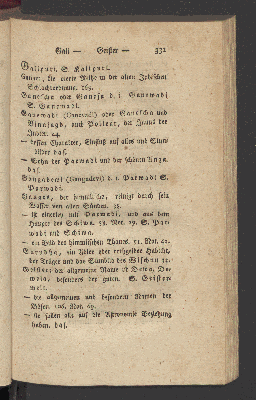 Gali — Geister — 331
Galipuri, S. Kalipuri.
die vierte Reihe in der alten Indischen
169.
Ganescha oder Ganesa d. i. Ganewadi
S. Ganewadi.
Ganewadi (Ganavadi) oder Ganescha und
Vinajagd, auch Polear, der Janus der
Inder. 24.
— dessen Charakter, Einfluß auf alles und Sinn
bilder das.
— Sohn der Parwadi und der schönen Anga.
das.
Gongadewi (Gongadevi) d. i. Parwadi S.
Parwadi.
Ganges, der himmlische, reinigt durch sein
Wasser von allen Sünden. 38.
— ist einerley mit Parwadi, und aus dem
Haupte des Schiwa. 38. Not. 29. S. Par
wadi und Schiwa.
— ein Bild des himmlischen Thaues. 31. Not. 40.
Garudha, ein Adler oder
der Träger und das Sinnbild des Wischnu 31.
Geister; der allgemeine Name ist Dewa, De
weta, besonders der guten. S. Geister
welt.
— die allgemeinen und besondern Namen der
Bösen. 106. Not. 49.
— sie sollen alle auf die Astronomie Beziehung
haben. das.